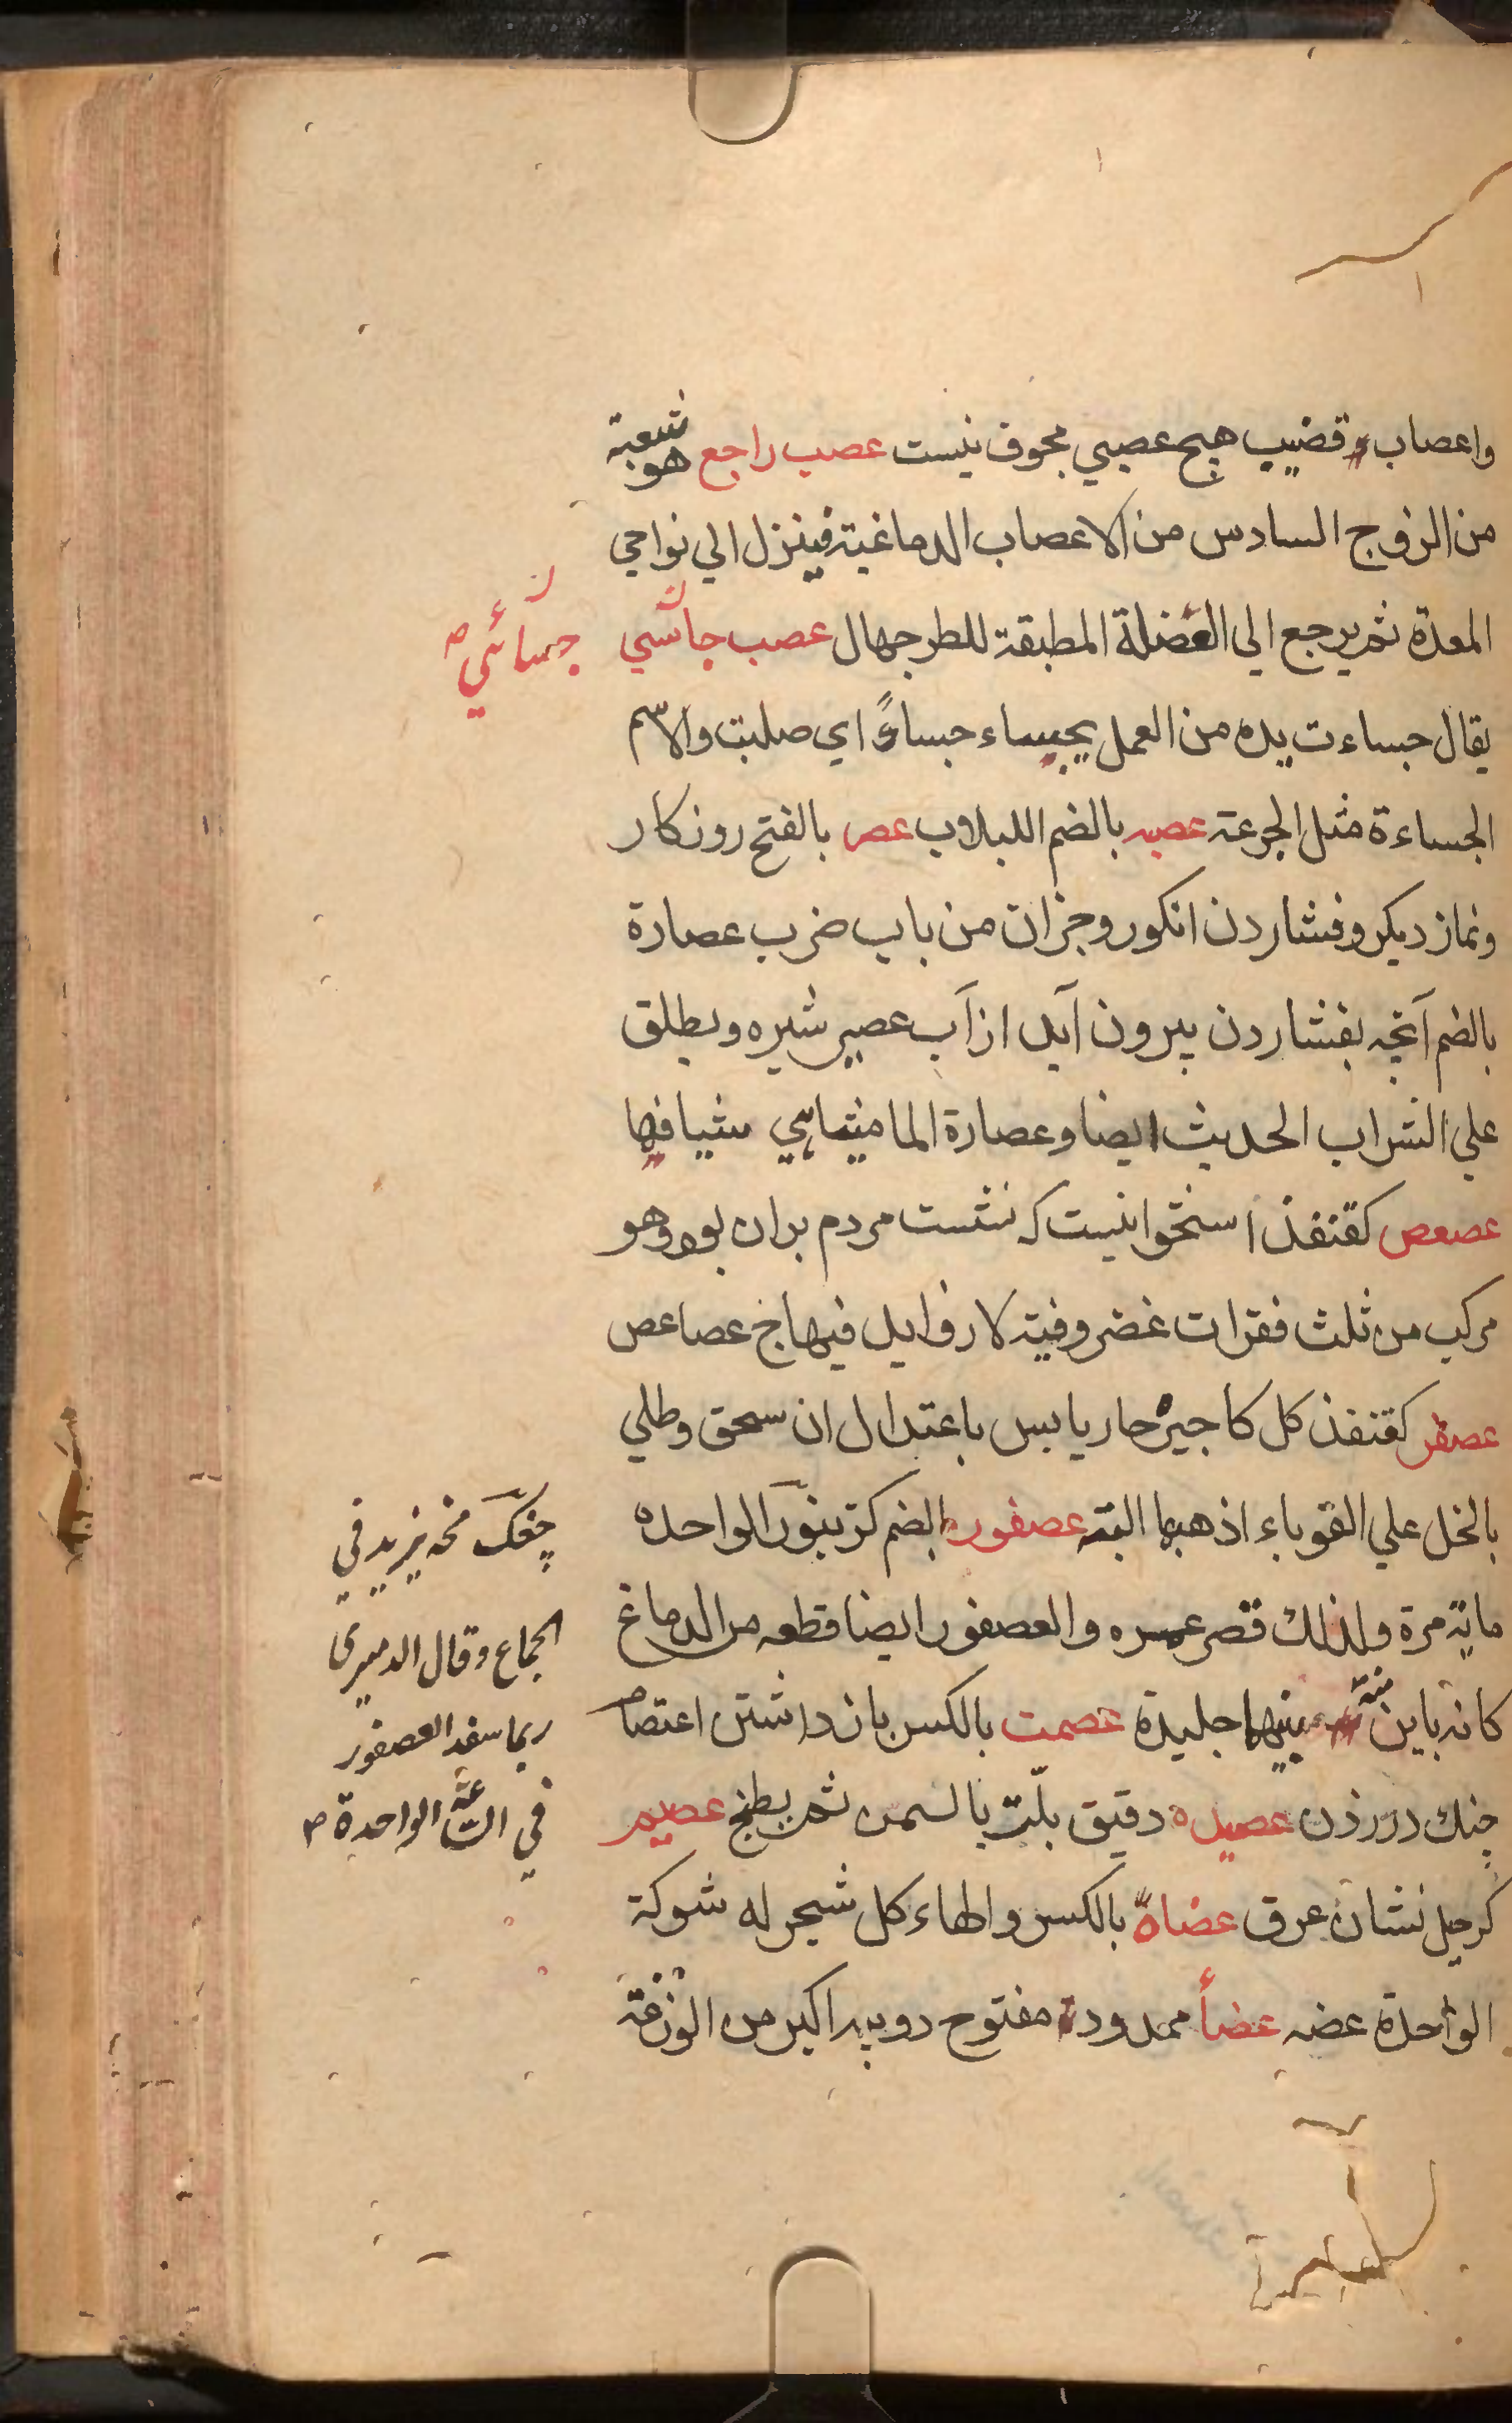 واعصاب قضيب هيج عصبي مجوف نيست عصب راجع هو شعبة
من الزوج السادس من الاعصاب الدماغية فينزل الي نواحي
المعدة ثم يرجع الي العضلة المطبقة للطرجهال عصب جاسي
جسائي ص
يقال جساءت يده من العمل يجساء جساءً اي صلبت والاسم
الجساءة مثل الجرعة عصبه بالضم اللبلاب عصر بالفتح روزكار
ونماز ديكر وفشاردن انكور وجزان من باب ضرب عصارة
بالضم آنچه بفشاردن بيرون آيد از آب عصير شيره ويطلق
علي الشراب الحديث ايضا وعصارة الماميثا هي شيافها
عصعص كقنفذ استخوانيست كه نشست مردم بران بود وهو
مركب من ثلث فقرات غضروفية لا زوايد فيها ج عصاعص
عصفر كقنفذ كل كاجيره حار يابس باعتدال ان سحق وطلي
بالخل علي القوباء اذهبها البته عصفور بالضم كزبنور الواحده
ماية مرة ولذلك قصر عمره والعصفور ايضا قطعه من الدماغ
كانه باين منه بينهما جليدة عصمت بالكسر بازداشتن اعتصام
چنك درزدن عصيده دقيق بلّت بالسمن ثم يطبخ عصيم
كرجيل نشان عرق عضاه بالكسر والهاء كل شجر له شوكة
الواحدة عضه عضأ ممدودة مفتوح دويبه اكبر من الوزغة
چغك مخه يزيد في
الجماع وقال الدميري
ربما سفد العصفور
في الساعة الواحدة ص